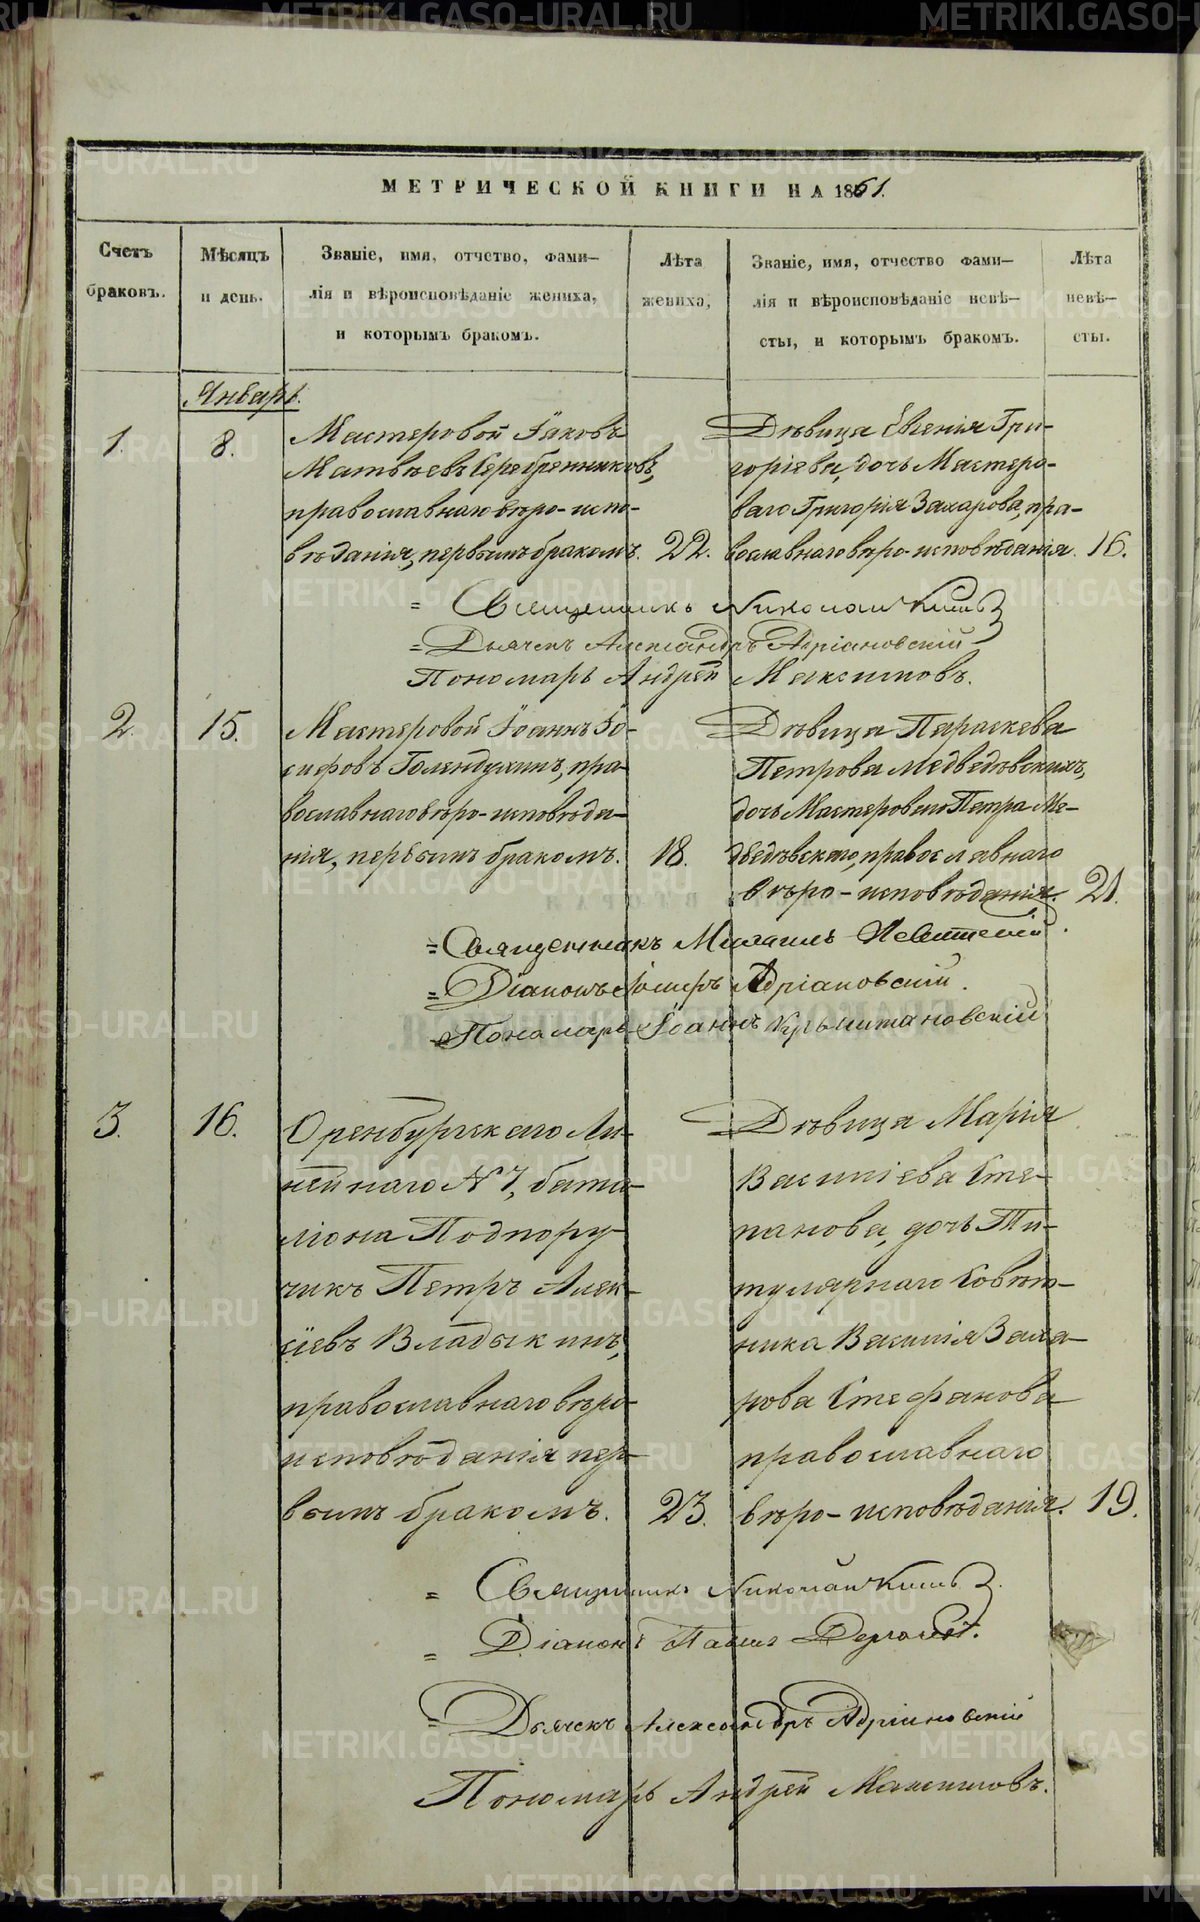 МЕТРИЧЕСКОЙ КНИГИ НА 1861.
Счетъ браковъ.
Мѣсяцъ и день.
Званіе, имя, отчство, фами—
лія и вѣроисповѣданіе жениха,
и которымъ бракомъ.
Лѣта жениха,
Званіе, имя, отчество фами—
лія и вѣроисповѣданіе невѣ—
сты, и которымъ бракомъ.
Лѣта невѣ—
сты.
Январь.
1. 8.
Мастеровой Іаковъ
Матвѣевъ Серебренниковъ,
православнаго вѣро-испо-
вѣданія, первымъ бракомъ. 22.
Дѣвица Евгенія Гри-
горіева, дочь Мастеро-
ваго Григорія Захарова, пра-
вославнаго вѣро-исповѣданія. 16.
= Священникъ Николай
= Дьячекъ Александръ Адріановскій
Пономарь Андрей Максимовъ.
2. 15.
Мастеровой Іоаннъ Іо-
сифовъ Голендухинъ, пра-
вославнаго вѣро-исповѣда-
нія, первымъ бракомъ. 18.
Дѣвица Параскева
Петрова Медведѣвскихъ,
дочь Мастероваго Петра Ме-
дведѣвскаго, православнаго
вѣро-исповѣданія. 21.
= Священникъ Михаилъ
= Діаконъ Іосифъ Адріановскій.
= Пономарь Іоаннъ
3. 16.
Оренбургскаго Ли-
нейнаго № 7, бата-
ліона Подпору-
чикъ Петръ Алек-
сіевъ Владыкинъ,
православнаго вѣро-
исповѣданія пер-
вымъ бракомъ. 23.
Дѣвица Марія
Василіева Сте-
панова, дочь Ти-
тулярнаго Совѣт-
ника Василія Заха-
рова Стефанова
православнаго
вѣро-исповѣданія. 19.
= Священникъ Николай
= Діаконъ Павелъ
= Дьячекъ Александръ Адріановскій
Пономарь Андрей Максимовъ.
METRIKI.GASO-URAL.RU